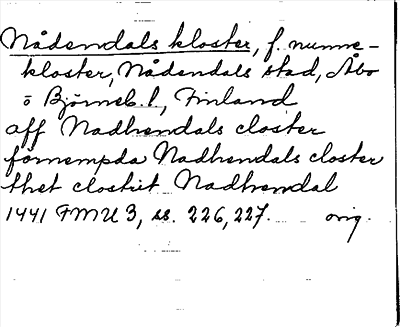 Nådendals kloster, f. nunne-
kloster, Nådendals stad, Åbo
o Björneb. l., Finland
aff Nadhendals closter
förnempda Nadhendals closter
thet clostrit Nadhendal
1441 FMU 3, ss. 226, 227. orig.